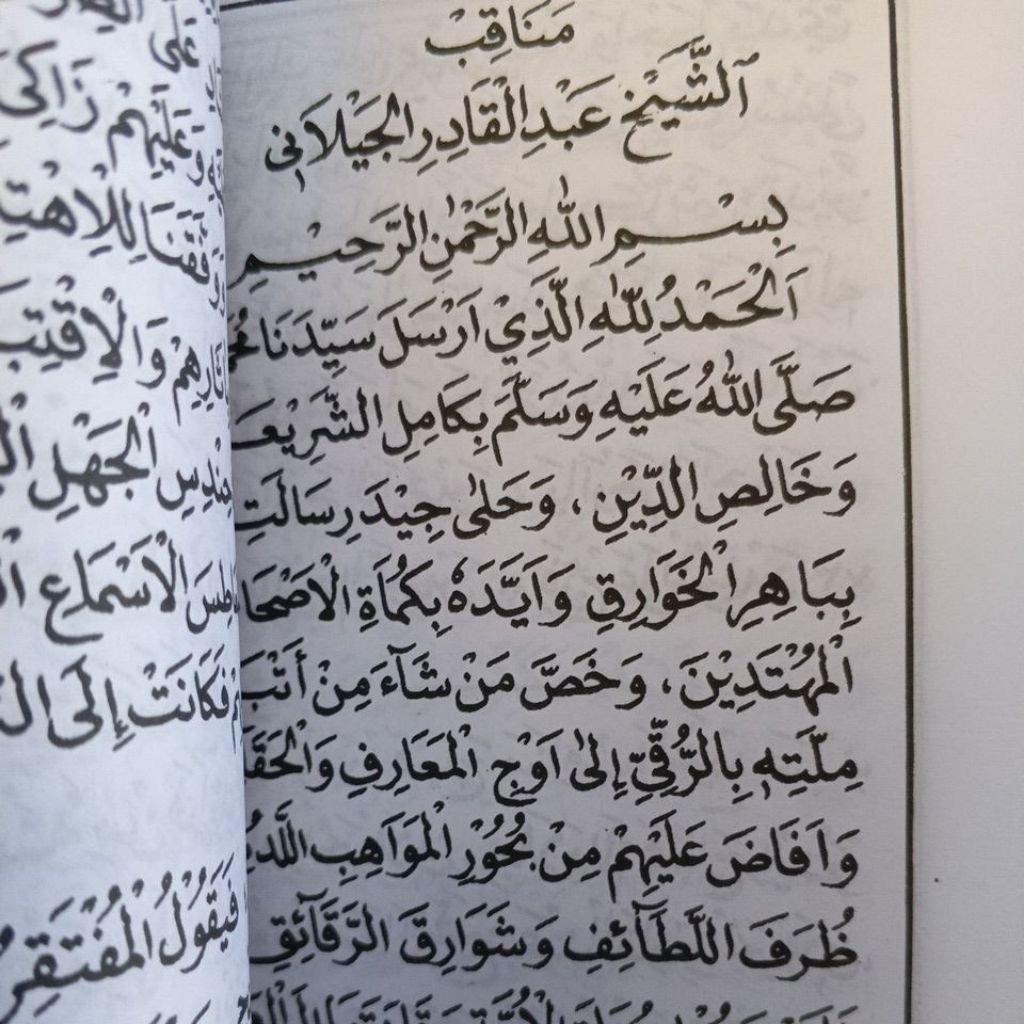 مَنَاقِبْ
اَلشَّيْخِ عَبْدِ الْقَادِرِ الْجَيْلَانِى
بِسْمِ اللّٰهِ الرَّحْمٰنِ الرَّحِيْمِ
اَلْحَمْدُ لِلّٰهِ الَّذِيْ اَرْسَلَ سَيِّدَنَا
صَلَّى اللّٰهُ عَلَيْهِ وَسَلَّمَ بِكَامِلِ الشَّرِيْعَ
وَخَالِصِ الدِّيْنِ ، وَحَلٰى جِيْدَ رِسَالَتِ
بِبَاهِرِ الْخَوَارِقِ وَاَيَّدَهٗ بِكُمَاةِ الْاَصْحَا
الْمُهْتَدِيْنَ ، وَخَصَّ مَنْ شَآءَ مِنْ أَتْبَ
مِلَّتِهٖ بِالرُّقِّيِّ إِلٰى اَوْجِ الْمَعَارِفِ وَالْحَقَ
وَاَفَاضَ عَلَيْهِمْ مِنْ بُحُوْرِ الْمَوَاهِبِ اللَّدُ
ظُرَفَ اللَّطَآئِفِ وَشَوَارِقَ الرَّقَآئِقِ
عَلَى
وَعَلَيْهِمْ زَاكِى
وَوَفَّقَنَا لِلْاِهْتِ
اٰثَارِهِمْ وَالْاِقْتِ
حِنْدِسِ الْجَهْلِ
الْاَسْمَاعِ
فَكَانَتْ إِلَى
فَيَقُوْلُ الْمُفْتَقِرُ